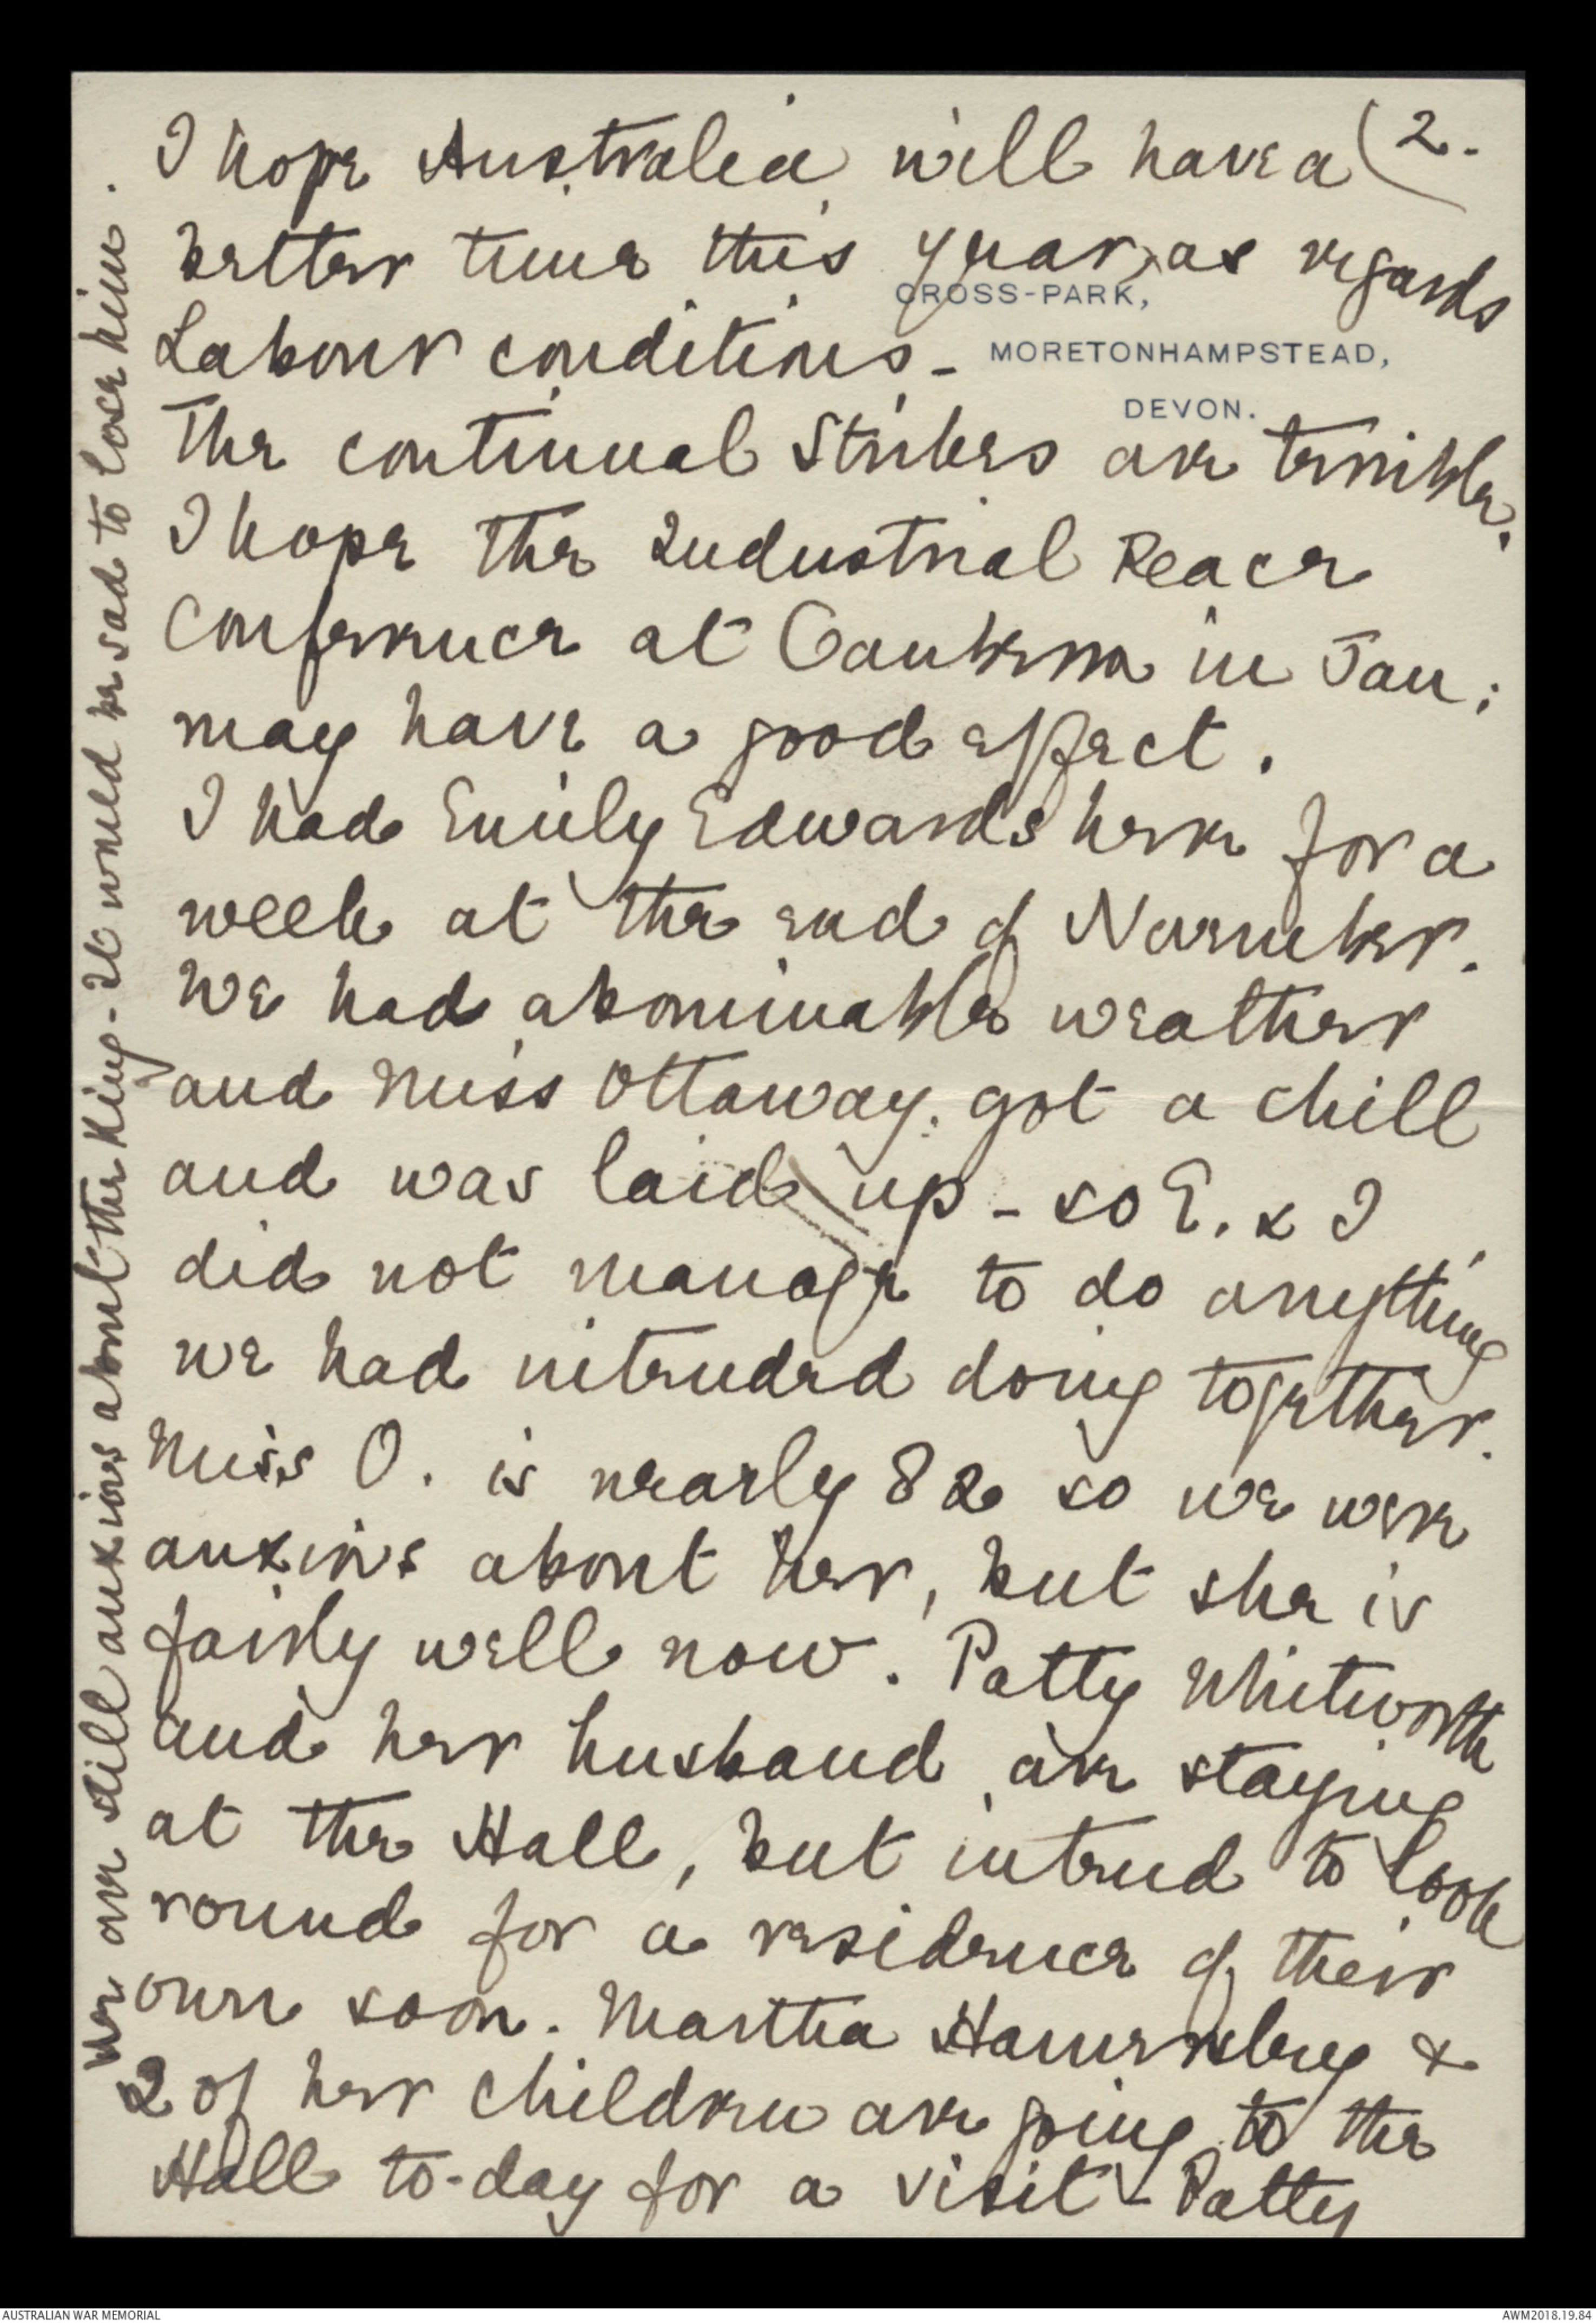 (2.
I hope Australia will have a
better time this year, as regards
CROSS-PARK,
MORETONHAMPSTEAD,
DEVON.
Labour conditions -
The continual Strikes are terrible.
I hope the Industrial Peace
Conference at Canberra in Jan:
may have a good effect.
I had Emily Edwards here for a
week at the end of November.
We had abominable weather
and Miss Ottaway. got a chill
and was laid up - so E. & I
did not manage to do anything
we had intended doing together.
Miss O. is nearly 82 so we were
anxious about her, but she is
fairly well now. Patty Whitworth
and her husband are staying
at the Hall, but intend to look
round for a residence of their
own soon. Martha Hamersley &
2 of her children are going to the
Hall to-day for a visit - Patty
We are still anxious about the King - It would be sad to lose him.
AUSTRALIAN WAR MEMORIAL
AWM2018.19.84